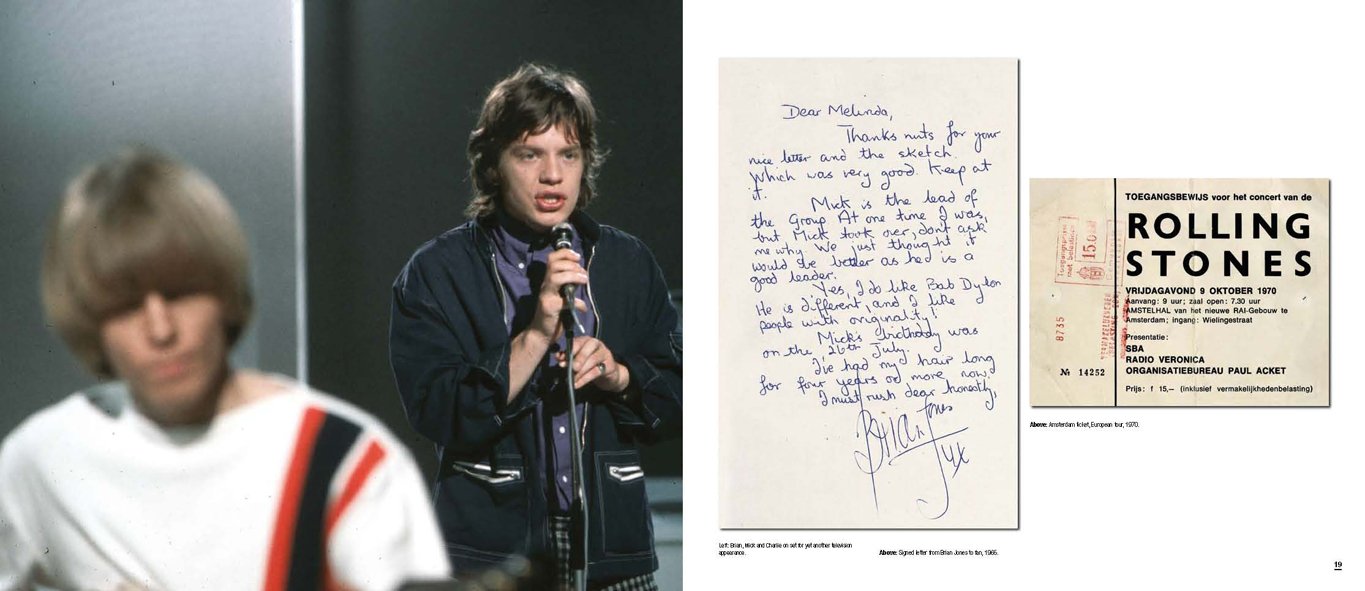 Dear Melinda,
Thanks nuts for your
nice letter and the sketch.
Which was very good. Keep at
it.
Mick is the lead of
the Group At one time I was,
but Mick took over, dont ask
me why. We just thought it
would be better as he's is a
good leader.
Yes, I do like Bob Dylon
He is different, and I like
people with originality!
Mick's birthday was
on the 26th July.
I've had my hair long
for four years or more now.
I must rush dear honestly,
Brian Jones
xx
TOEGANGSBEWIJS voor het concert van de
ROLLING
STONES
VRIJDAGAVOND 9 OKTOBER 1970
Aanvang: 9 uur; zaal open: 7.30 uur
AMSTELHAL van het nieuwe RAI-Gebouw te
Amsterdam; ingang: Wielingestraat
Presentatie:
SBA
RADIO VERONICA
ORGANISATIEBUREAU PAUL ACKET
Prijs: f 15,-- (inklusief vermakelijkhedenbelasting)
Toegangsprijs
met belasting
15.0
8735
№ 14252
Above: Amsterdam ticket, European tour, 1970.
Left: Brian, Mick and Charlie on set for yet another television
appearance.
Above: Signed letter from Brian Jones to fan, 1965.
19